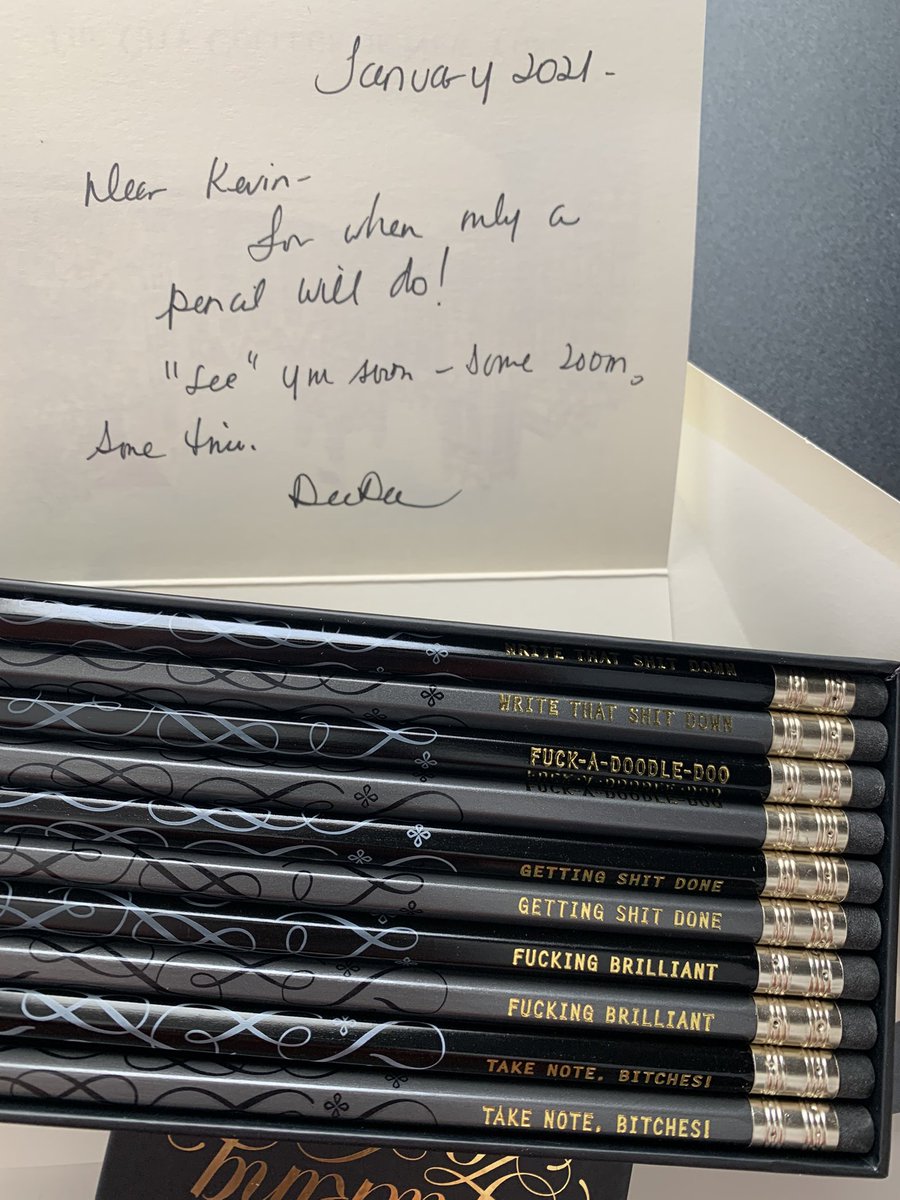 January 2021-
Dear Kevin-
for when only a
pencil will do!
"See" you soon - some zoom,
some time.
DeeDee
WRITE THAT SHIT DOWN
WRITE THAT SHIT DOWN
FUCK-A-DOODLE-DOO
FUCK-A-DOODLE-DOO
GETTING SHIT DONE
GETTING SHIT DONE
FUCKING BRILLIANT
FUCKING BRILLIANT
TAKE NOTE, BITCHES!
TAKE NOTE, BITCHES!